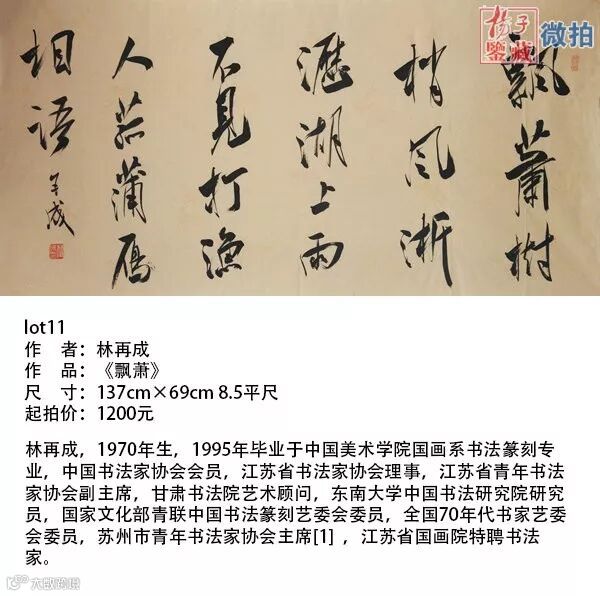 揚子
鑒藏
微拍
飄蕭樹
梢風淅
瀝湖上雨
不見打漁
人菰蒲雁
相語
再成
lot11
作 者：林再成
作 品：《飘萧》
尺 寸：137cm×69cm 8.5平尺
起拍价：1200元
林再成，1970年生，1995年毕业于中国美术学院国画系书法篆刻专
业，中国书法家协会会员，江苏省书法家协会理事，江苏省青年书法
家协会副主席，甘肃书法院艺术顾问，东南大学中国书法研究院研究
员，国家文化部青联中国书法篆刻艺委会委员，全国70年代书家艺委
会委员，苏州市青年书法家协会主席[1] ，江苏省国画院特聘书法
家。
大数跨境